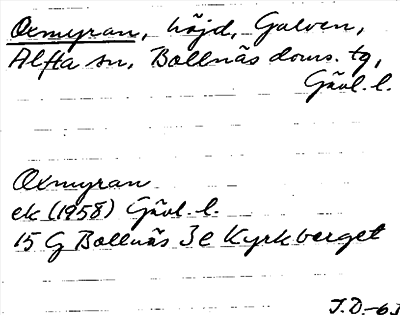 Oxmyran, höjd, Galven,
Alfta sn, Bollnäs doms. tg,
Gävl. l.
Oxmyran
ek (1958) Gävl. l.
15 G Bollnäs 3e Kyrkberget
J.D-63